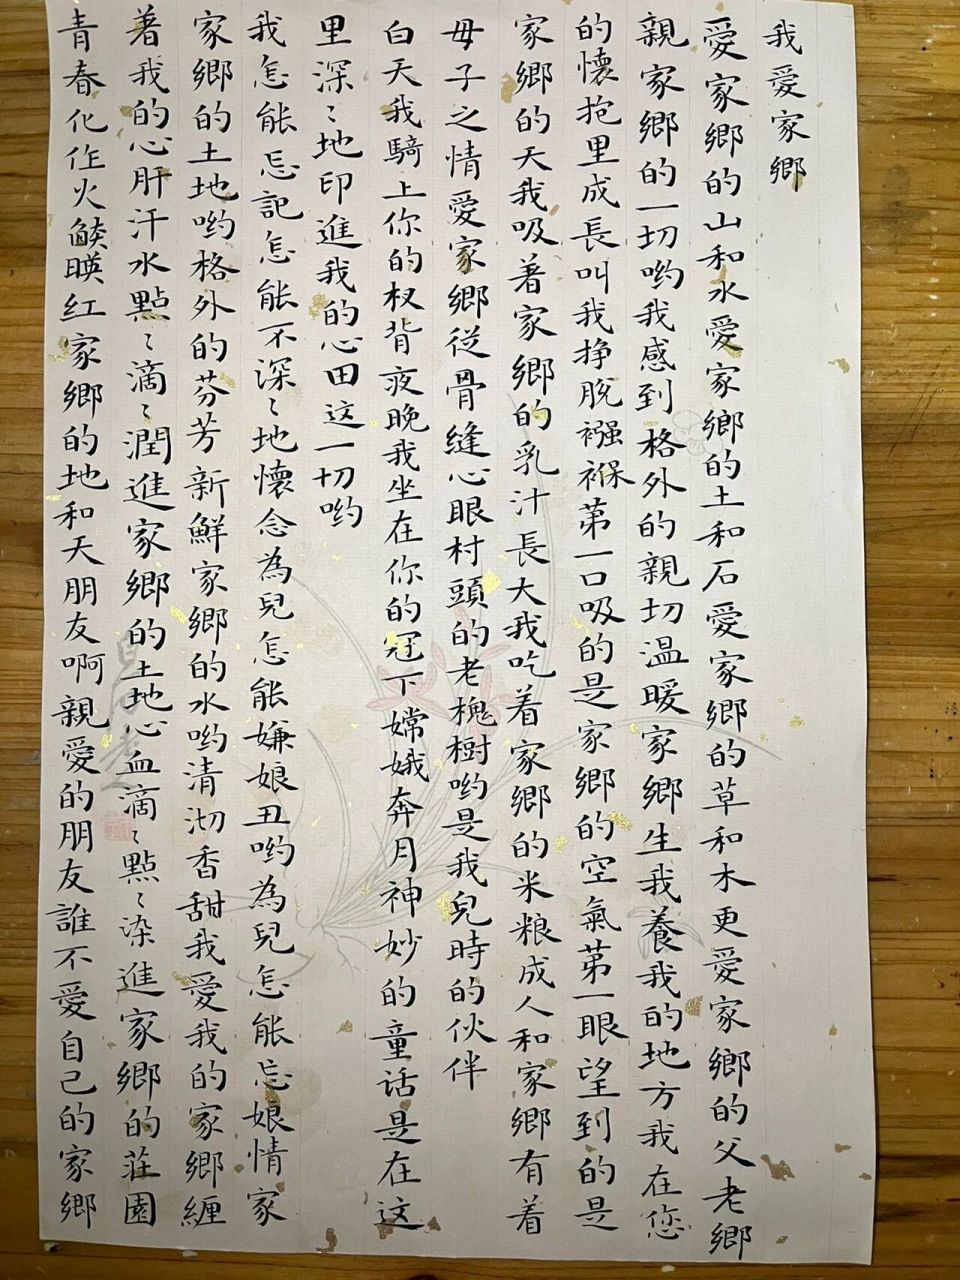 我愛家鄉
愛家鄉的山和水愛家鄉的土和石愛家鄉的草和木更愛家鄉的父老鄉
親家鄉的一切喲我感到格外的親切温暖家鄉生我養我的地方我在您
的懷抱里成長叫我挣脱襁褓第一口吸的是家鄉的空氣第一眼望到的是
家鄉的天我吸著家鄉的乳汁長大我吃着家鄉的米粮成人和家鄉有着
母子之情愛家鄉從骨縫心眼村頭的老槐樹喲是我兒時的伙伴
白天我騎上你的杈背夜晚我坐在你的冠下嫦娥奔月神妙的童话是在这
里深〻地印進我的心田這一切喲
我怎能忘記怎能不深〻地懷念為兒怎能嫌娘丑喲為兒怎能忘娘情家
家鄉的土地喲格外的芬芳新鮮家鄉的水喲清沏香甜我愛我的家鄉纏
著我的心肝汗水點〻滴〻潤進家鄉的土地心血滴〻點〻染進家鄉的莊園
青春化作火燄暎红家鄉的地和天朋友啊親愛的朋友誰不愛自己的家鄉